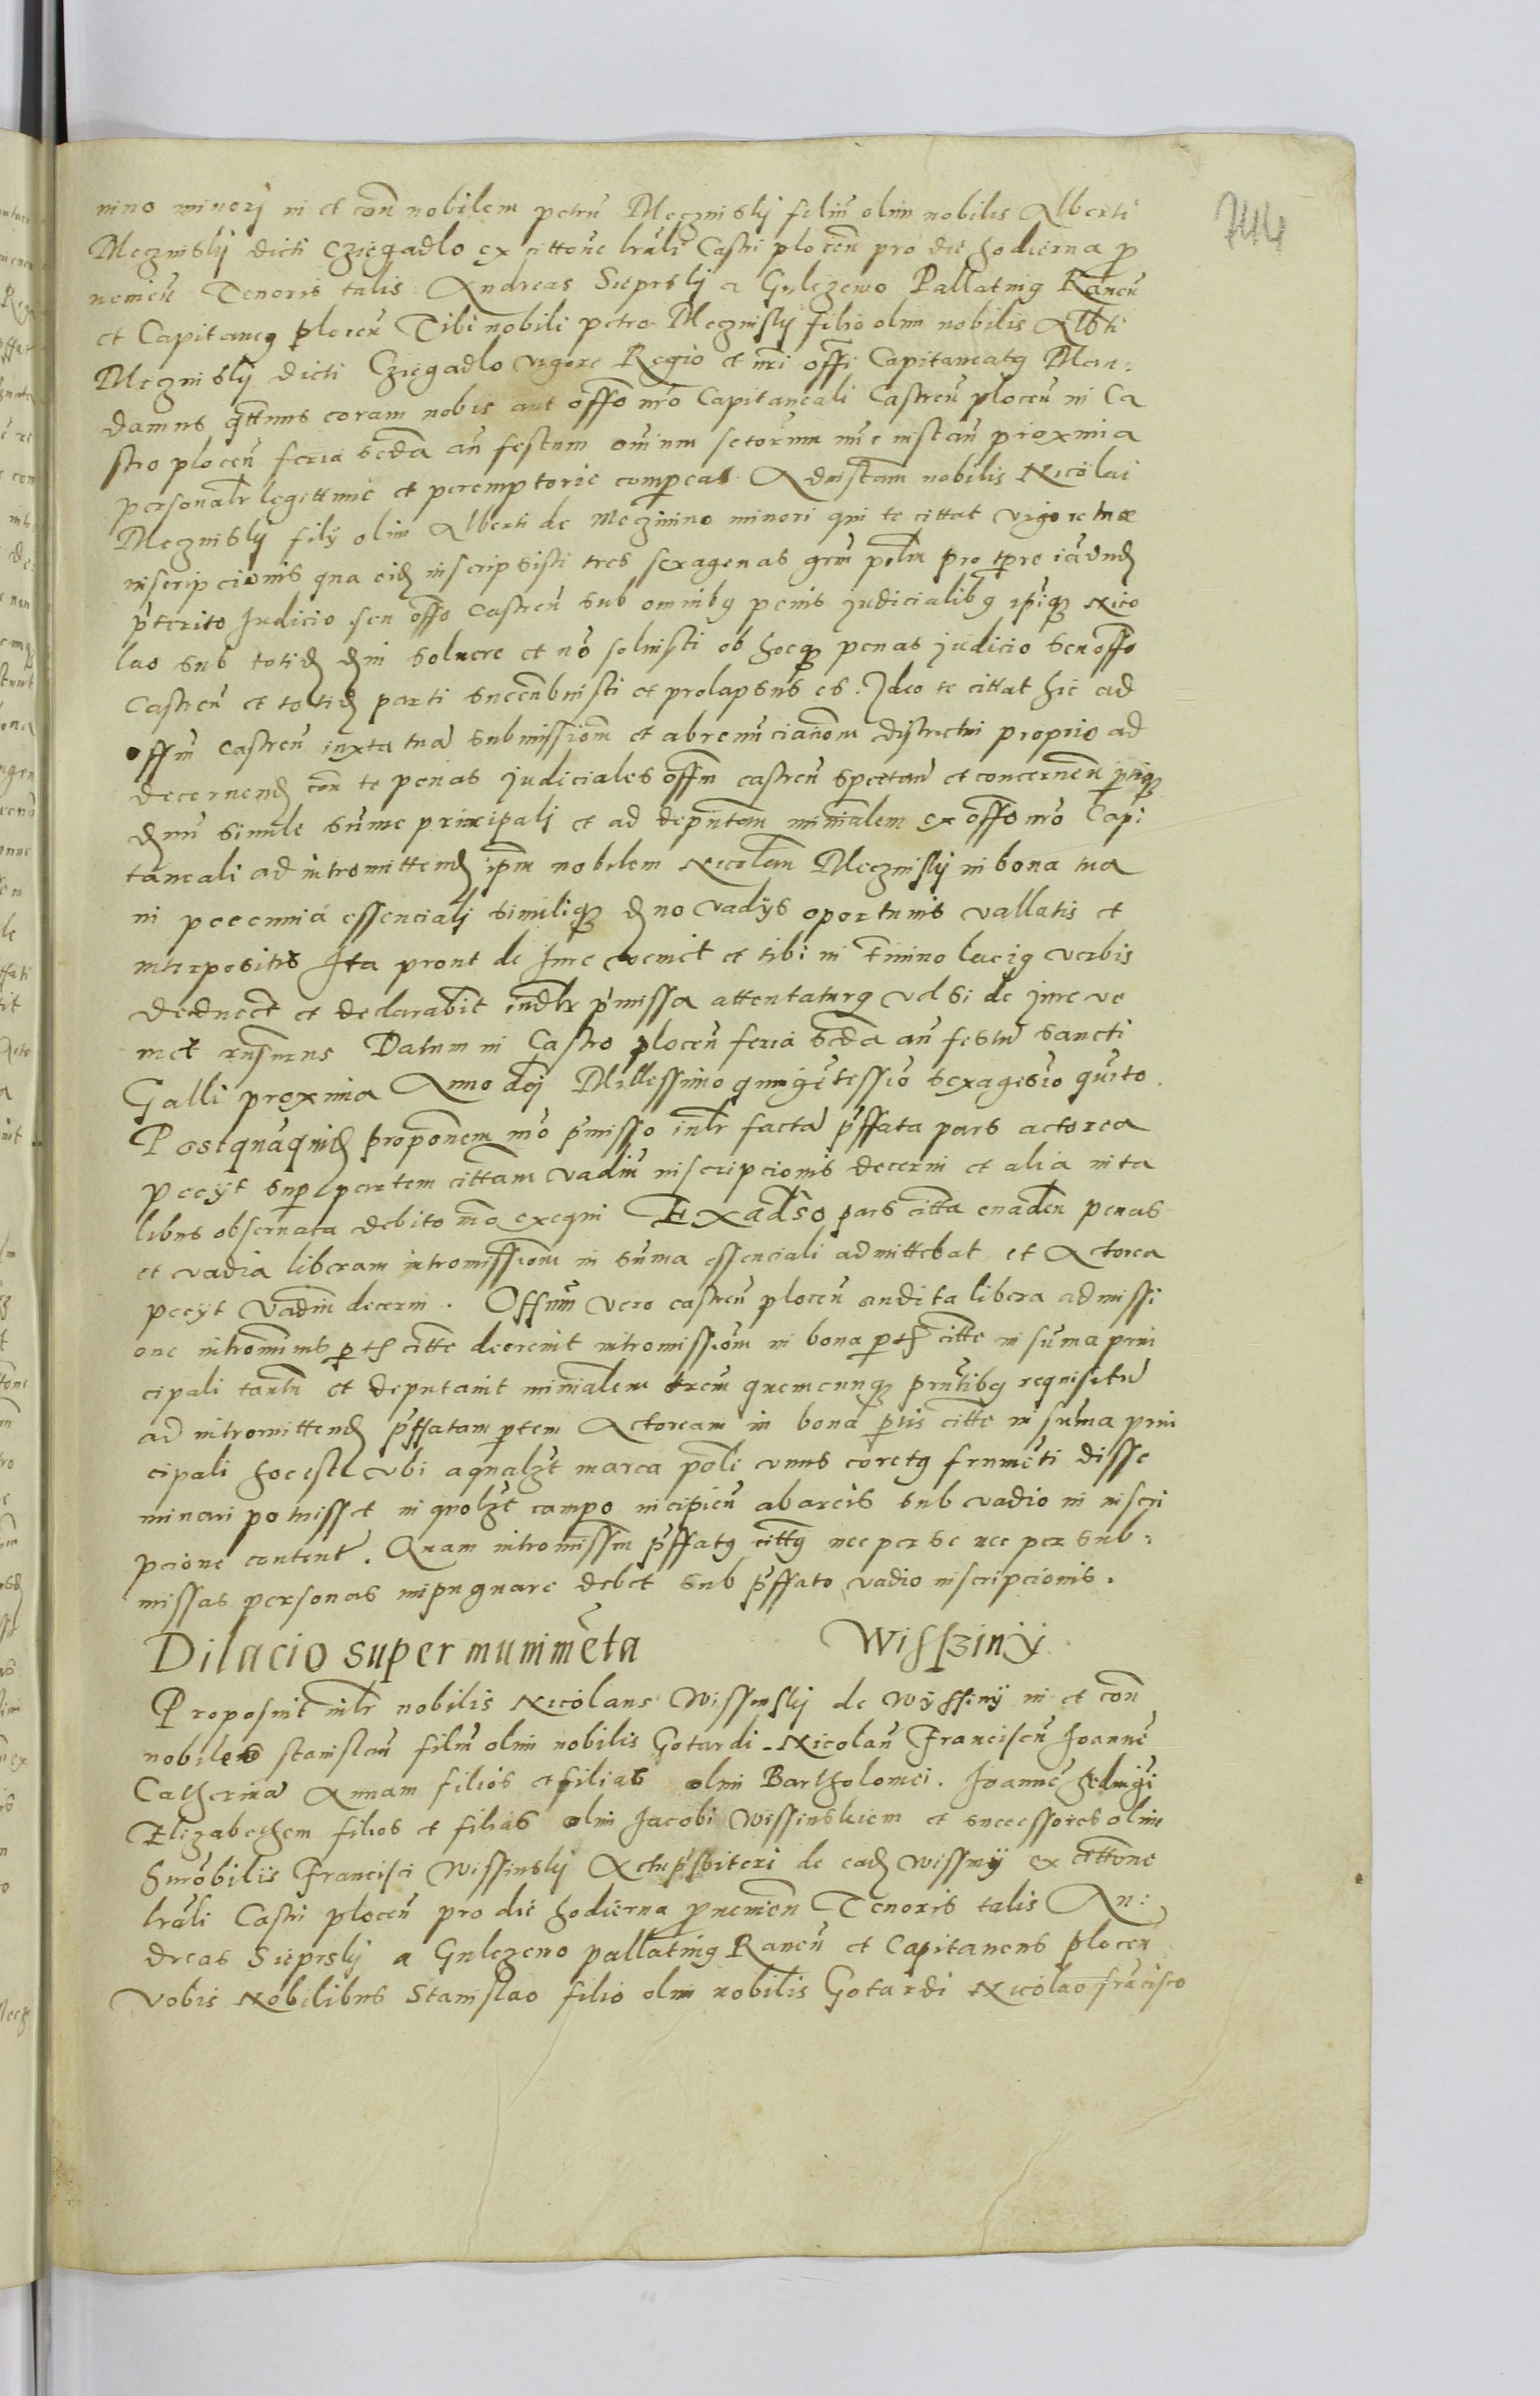 744
nino minorj in et con̄ nobilem petrū Megznislij filiū olim nobilis Alberti
Megznislij dicti Cziegadlo ex cittōne lrāli Castri plocen̄ pro die hodierna p
uenien̄ Tenoris talis Andreas Sieprslij a Gulczewo Pallatin9 Raūen̄
et Capitane9 plocen̄ Tibi nobili petro Megznislij filio olim nobilis Albti
Megznislij dicti Cziegadlo vigore Regio et nr̄i offi Capitaneat9 Man:
damus q̄ttenus coram nobis aut offō nrō Capitaneali Castren̄ plocen̄ in Ca
stro plocen̄ feria scdā an̄ festum om̄ium sctorum nūc instan̄ proxima
personalr̄ legittime et peremptorie compeas Ad instam̄ nobilis Nicolai
Megznislij filij olim Alberti de Megznino minori qui te cittat vigore tuæ
inscripcionis qua eidē inscripsisti tres sexagenas grm̄ polm̄ pro tpre iādudū
p̄terito Judicio seu offō Castren̄ sub omnib9 penis judicialib9 ipiq3 Nico
lao sub totidē dm̄i soluere et nō soluisti ob hocq3 penas judicio seu offō
Castren̄ et totidē parti succubuisti et prolapsus es. Ideo te cittat hic ad
offm̄ Castren̄ iuxta tuā submissiom̄ et abrenunciaciōm districtui proprio ad
decernend̄ con̄ te penas judiciales offm̄ castren̄ spectan̄ et concernen̄ ptiq3
dm̄ū simile sume principalj et ad deputan̄ minialem ex offō nrō Capi
taneali ad intromittend̄ ipm̄ nobilem Nicolam̄ Megznislij in bona tua
in peccunia essencialj similiq3 dmno vadijs oportunis vallatis et
interpositis Ita prout de Jure venict et tibi in tm̄ino laci9 verbis
deducet et declarabit iudlr̄ p̄missa attentatur9 vel si de jure ve
niet rūsurus Datum in Castro plocen̄ feria scdā an̄ festū sancti
Galli proxima Anno dnj Millessimo quingētessīo sexagesīo quīto.
Postquaquid̄ proponem̄ mō p̄missō inlr̄ factā p̄ffata pars actorea
pecijt super partem cittam̄ vadiū inscripcionis decerni et alia in ta
libus obseruata debito mō exequi Ex adūso pars citta euaden̄ penas
et vadia liberam intromissiom̄ in suma essenciali admittebat et Actorea
pecijt vadiū decerni. Offum̄ vero castren̄ plocen̄ audita libera admissi
one intromionis ptis citte decreuit intromissiom̄ in bona ptis citte in suma prin
cipali tantū et deputauit minialem trem̄ quemcunq3 prntib9 requisitū
ad intromittend̄ p̄ffatam ptem Actoream in bona ptis citte in suma prin
cipali hoc est vbi aqualzt marca poli vnus coret9 frumēti disse
minari potuisset in quolzt campo incipien̄ ab areis sub vadio in inscri
pcione content̄. Quam intromissm̄ p̄ffat9 citt9 nec per se nec per sub:
missas personas inpugnare debet sub p̄ffato vadio inscripcionis.
Dilacio super munimēta Wissziny
Proposuit inlr̄ nobilis Nicolaus Wissinslij de Wyssiny in et con̄
nobilem stanislaū filiū olim nobilis Gotardi Nicolaū Franciscū Joannē
Catherinā Annam filios et filias olim Bartholomei. Joannē hedwigi
Elizabethem filios et filias olim Jacobi Wissinskiem et successores olim
Hnrobilis Francisci Wissinslij Archip̄sbiteri de eadē Wissiny ex cittōne
lrāli Castri plocen̄ pro die hodierna puenien̄ Tenoris talis An:
dreas Sieprslij a Gulczewo pallatin9 Rauen̄ et Capitaneus plocen̄
Vobis Nobilibus Stanislao filio olim nobilis Gotardi Nicolao frācisco